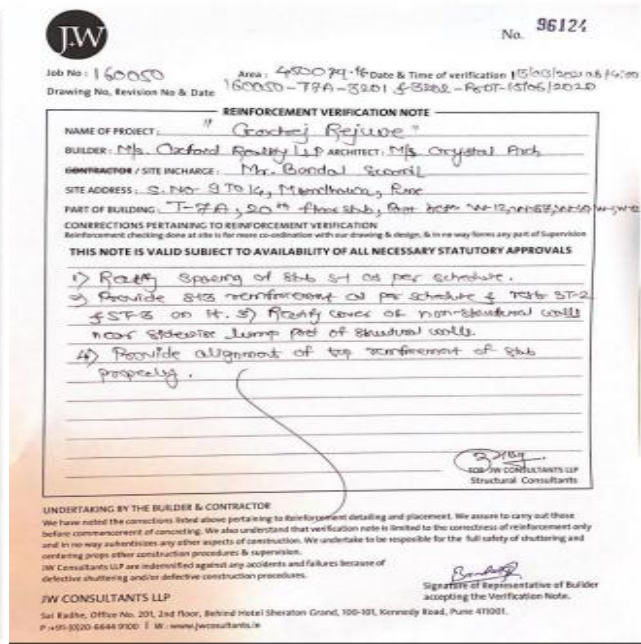 JW
No. 96124
Job No: 160050
Area:
Date & Time of verification
Drawing No, Revision No & Date 160050-T7A-3201 & 3202-R0DT-15/06/2020
REINFORCEMENT VERIFICATION NOTE
NAME OF PROJECT: " Godrej Rejuve "
BUILDER: M/s. Oxford Realty LLP ARCHITECT: M/s Crystal Arch
CONTRACTOR / SITE INCHARGE: Mr. Bandal
SITE ADDRESS: S. No 9 To 14, Pune
PART OF BUILDING: T-7A, 20th floor slab,
CONRRECTIONS PERTAINING TO REINFORCEMENT VERIFICATION
Reinforcement checking done at site is for more co-ordination with our drawing & design, & in no way forms any part of Supervision
THIS NOTE IS VALID SUBJECT TO AVAILABILITY OF ALL NECESSARY STATUTORY APPROVALS
1) Rectify spacing of slab S-1 as per schedule.
2) Provide reinforcement as per schedule & ST-2
& ST-3 on it. 3) Rectify cover of non-structural walls
near sidewise part of structural walls.
4) Provide alignment of top reinforcement of slab
properly.
FOR JW CONSULTANTS LLP
Structural Consultants
UNDERTAKING BY THE BUILDER & CONTRACTOR
We have noted the corrections listed above pertaining to Reinforcement detailing and placement. We assure to carry out those
before commencement of concreting. We also understand that verification note is limited to the correctness of reinforcement only
and in no way authentizes any other aspects of construction. We undertake to be responsible for the full safety of shuttering and
centering props other construction procedures & supervision.
JW Consultants LLP are indemnified against any accidents and failures because of
defective shuttering and/or defective construction procedures.
Signature of Representative of Builder
accepting the Verification Note.
JW CONSULTANTS LLP
Sai Radhe, Office No. 201, 2nd floor, Behind Hotel Sheraton Grand, 100-101, Kennedy Road, Pune 411001.
P :+91-(0)20-6644 9100 | W : www.jwconsultants.in